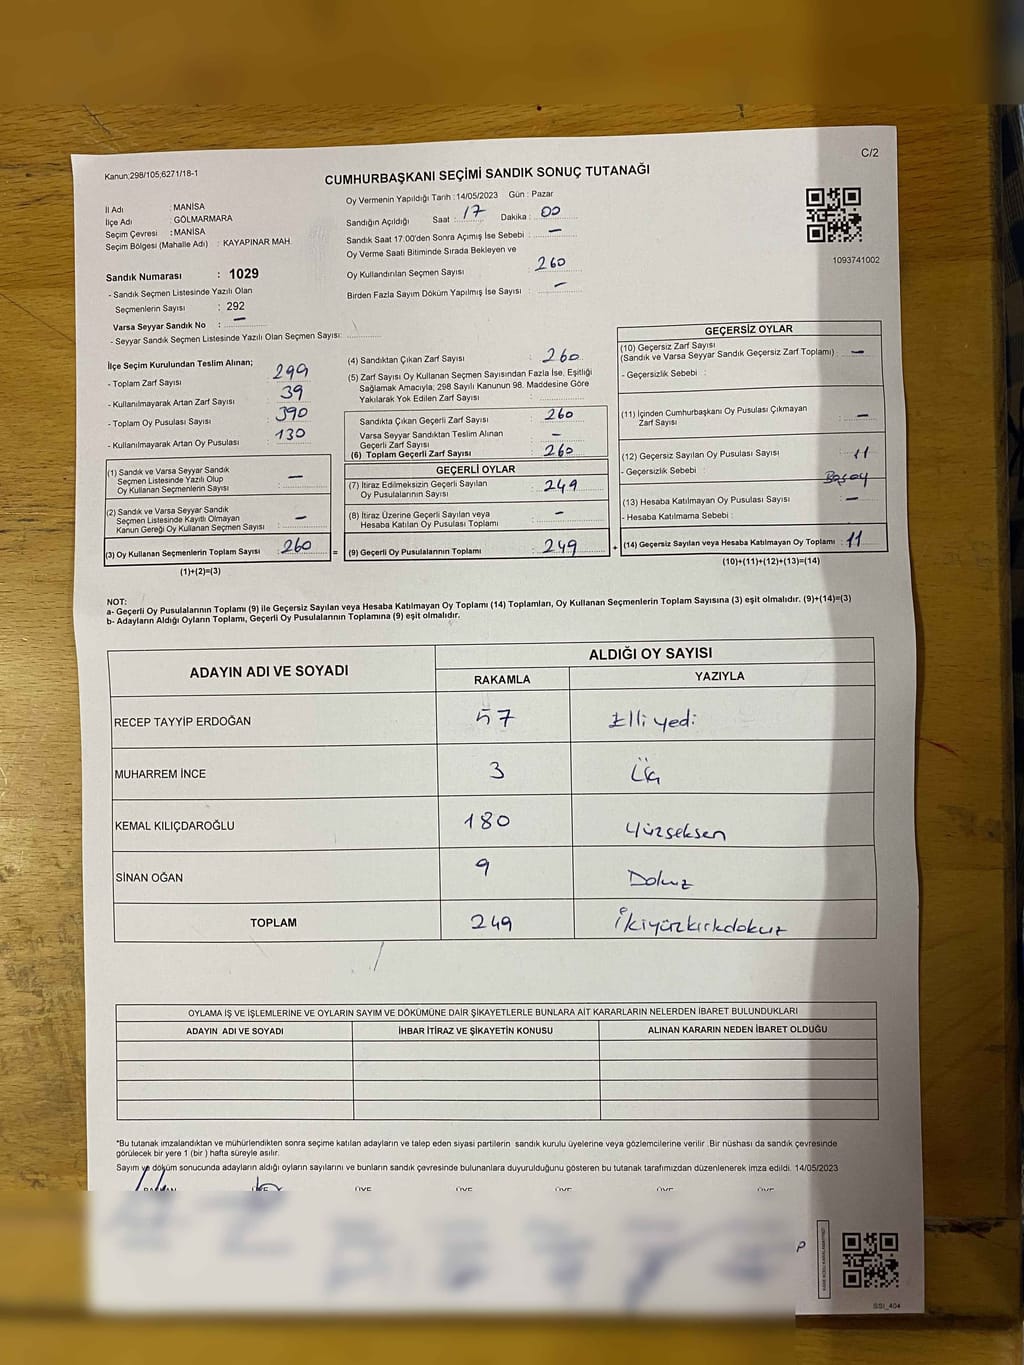 C/2
Kanun:298/105,6271/18-1
CUMHURBAŞKANI SEÇİMİ SANDIK SONUÇ TUTANAĞI
İl Adı : MANİSA
İlçe Adı : GÖLMARMARA
Seçim Çevresi : MANİSA
Seçim Bölgesi (Mahalle Adı) : KAYAPINAR MAH.
Sandık Numarası : 1029
- Sandık Seçmen Listesinde Yazılı Olan
Seçmenlerin Sayısı : 292
Varsa Seyyar Sandık No : —
- Seyyar Sandık Seçmen Listesinde Yazılı Olan Seçmen Sayısı:
Oy Vermenin Yapıldığı Tarih :14/05/2023 Gün : Pazar
Sandığın Açıldığı Saat : 17 Dakika : 00
Sandık Saat 17.00'den Sonra Açımış İse Sebebi : —
Oy Verme Saati Bitiminde Sırada Bekleyen ve
Oy Kullandırılan Seçmen Sayısı : 260
Birden Fazla Sayım Döküm Yapılmış İse Sayısı : —
1093741002
İlçe Seçim Kurulundan Teslim Alınan;
- Toplam Zarf Sayısı : 299
- Kullanılmayarak Artan Zarf Sayısı : 39
- Toplam Oy Pusulası Sayısı : 390
- Kullanılmayarak Artan Oy Pusulası : 130
(1) Sandık ve Varsa Seyyar Sandık
Seçmen Listesinde Yazılı Olup
Oy Kullanan Seçmenlerin Sayısı : —
(2) Sandık ve Varsa Seyyar Sandık
Seçmen Listesinde Kayıtlı Olmayan
Kanun Gereği Oy Kullanan Seçmen Sayısı : —
(3) Oy Kullanan Seçmenlerin Toplam Sayısı : 260 =
(1)+(2)=(3)
(4) Sandıktan Çıkan Zarf Sayısı : 260
(5) Zarf Sayısı Oy Kullanan Seçmen Sayısından Fazla İse, Eşitliği
Sağlamak Amacıyla, 298 Sayılı Kanunun 98. Maddesine Göre
Yakılarak Yok Edilen Zarf Sayısı :
Sandıkta Çıkan Geçerli Zarf Sayısı : 260
Varsa Seyyar Sandıktan Teslim Alınan
Geçerli Zarf Sayısı : —
(6) Toplam Geçerli Zarf Sayısı : 260
GEÇERLİ OYLAR
(7) İtiraz Edilmeksizin Geçerli Sayılan
Oy Pusulalarının Sayısı : 249
(8) İtiraz Üzerine Geçerli Sayılan veya
Hesaba Katılan Oy Pusulası Toplamı : —
(9) Geçerli Oy Pusulalarının Toplamı : 249 +
GEÇERSİZ OYLAR
(10) Geçersiz Zarf Sayısı
(Sandık ve Varsa Seyyar Sandık Geçersiz Zarf Toplamı) : —
- Geçersizlik Sebebi :
(11) İçinden Cumhurbaşkanı Oy Pusulası Çıkmayan
Zarf Sayısı : —
(12) Geçersiz Sayılan Oy Pusulası Sayısı : 11
- Geçersizlik Sebebi :
(13) Hesaba Katılmayan Oy Pusulası Sayısı : —
- Hesaba Katılmama Sebebi :
(14) Geçersiz Sayılan veya Hesaba Katılmayan Oy Toplamı : 11
(10)+(11)+(12)+(13)=(14)
NOT:
a- Geçerli Oy Pusulalarının Toplamı (9) ile Geçersiz Sayılan veya Hesaba Katılmayan Oy Toplamı (14) Toplamları, Oy Kullanan Seçmenlerin Toplam Sayısına (3) eşit olmalıdır. (9)+(14)=(3)
b- Adayların Aldığı Oyların Toplamı, Geçerli Oy Pusulalarının Toplamına (9) eşit olmalıdır.
ADAYIN ADI VE SOYADI ALDIĞI OY SAYISI
RAKAMLA YAZIYLA
RECEP TAYYİP ERDOĞAN 57 Elli yedi
MUHARREM İNCE 3 Üç
KEMAL KILIÇDAROĞLU 180 Yüzseksen
SİNAN OĞAN 9 Dokuz
TOPLAM 249 İkiyüzkırkdokuz
OYLAMA İŞ VE İŞLEMLERİNE VE OYLARIN SAYIM VE DÖKÜMÜNE DAİR ŞİKAYETLERLE BUNLARA AİT KARARLARIN NELERDEN İBARET BULUNDUKLARI
ADAYIN ADI VE SOYADI İHBAR İTİRAZ VE ŞİKAYETİN KONUSU ALINAN KARARIN NEDEN İBARET OLDUĞU
*Bu tutanak imzalandıktan ve mühürlendikten sonra seçime katılan adayların ve talep eden siyasi partilerin sandık kurulu üyelerine veya gözlemcilerine verilir .Bir nüshası da sandık çevresinde
görülecek bir yere 1 (bir ) hafta süreyle asılır.
Sayım ve döküm sonucunda adayların aldığı oyların sayılarını ve bunların sandık çevresinde bulunanlara duyurulduğunu gösteren bu tutanak tarafımızdan düzenlenerek imza edildi. 14/05/2023
ÜYE ÜYE ÜYE ÜYE ÜYE
P
SSI_404